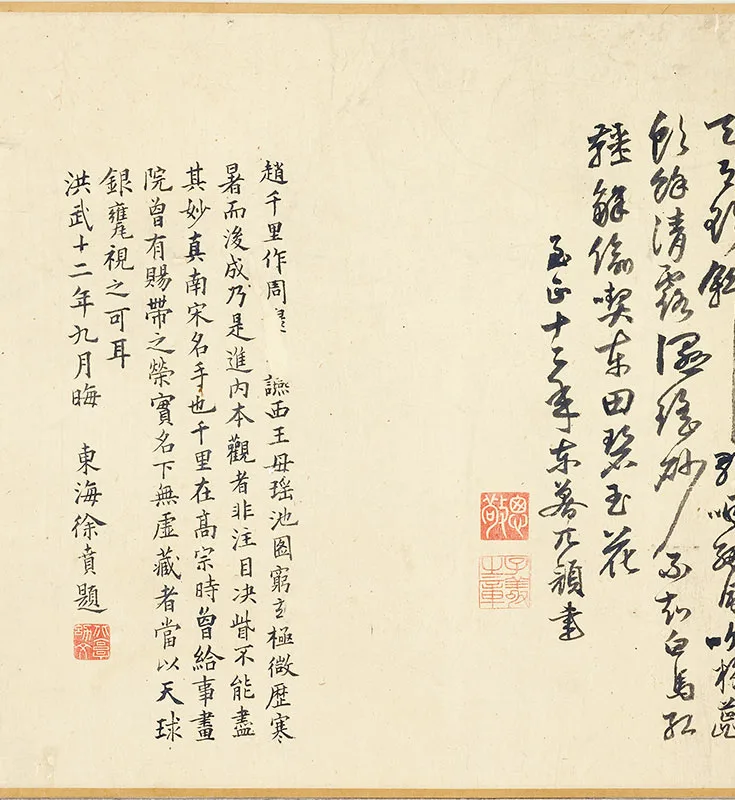 餘清露濕瑤砂不知白馬紅
韁解偷喫東田碧玉花
至正十三年東菴兀顏書
思敬
子義之章
趙千里作周 讌西王母瑤池圖窮玄極微歷寒
暑而後成乃是進內本觀者非注目決眥不能盡
其妙真南宋名手也千里在高宗時曾給事畫
院曾有賜帶之榮實名下無虛藏者當以天球
銀甕視之可耳
洪武十二年九月晦 東海徐賁題